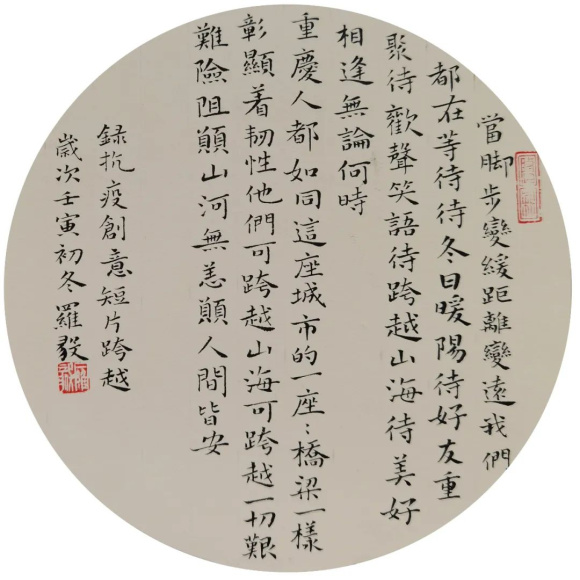 當脚步變緩距離變遠我們
都在等待待冬日暖陽待好友重
聚待歡聲笑語待跨越山海待美好
相逢無論何時
重慶人都如同這座城市的一座〻橋梁一樣
彰顯着韌性他們可跨越山海可跨越一切艱
難險阻顚山河無恙顚人間皆安
録抗疫創意短片跨越
歲次壬寅初冬羅毅